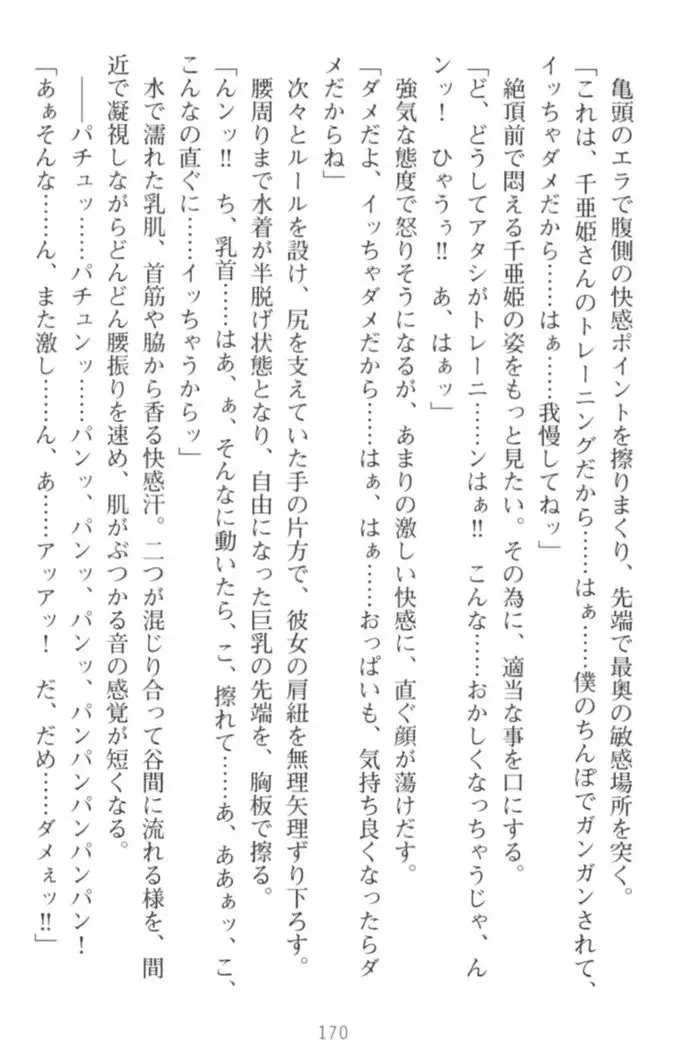 亀頭のエラで腹側の快感ポイントを擦りまくり、先端で最奥の敏感場所を突く。
「これは、千亜姫さんのトレーニングだから……はぁ……僕のちんぽでガンガンされて、
イッちゃダメだから……はぁ……我慢してねッ」
絶頂前で悶える千亜姫の姿をもっと見たい。その為に、適当な事を口にする。
「ど、どうしてアタシがトレーニ……ンはぁ!!　こんな……おかしくなっちゃうじゃ、ん
ンッ！　ひゃうぅ!!　あ、はぁッ」
強気な態度で怒りそうになるが、あまりの激しい快感に、直ぐ顔が蕩けだす。
「ダメだよ、イッちゃダメだから……はぁ、はぁ……おっぱいも、気持ち良くなったらダ
メだからね」
次々とルールを設け、尻を支えていた手の片方で、彼女の肩紐を無理矢理ずり下ろす。
腰周りまで水着が半脱げ状態となり、自由になった巨乳の先端を、胸板で擦る。
「んンッ!!　ち、乳首……はあ、ぁ、そんなに動いたら、こ、擦れて……あ、ああぁッ、こ、
こんなの直ぐに……イッちゃうからッ」
水で濡れた乳肌、首筋や脇から香る快感汗。二つが混じり合って谷間に流れる様を、間
近で凝視しながらどんどん腰振りを速め、肌がぶつかる音の感覚が短くなる。
――パチュッ……パチュンッ……パンッ、パンッ、パンッ、パンパンパンパンパン！
「あぁそんな……ん、また激し……ん、あ……アッアッ！　だ、だめ……ダメぇッ!!」
170